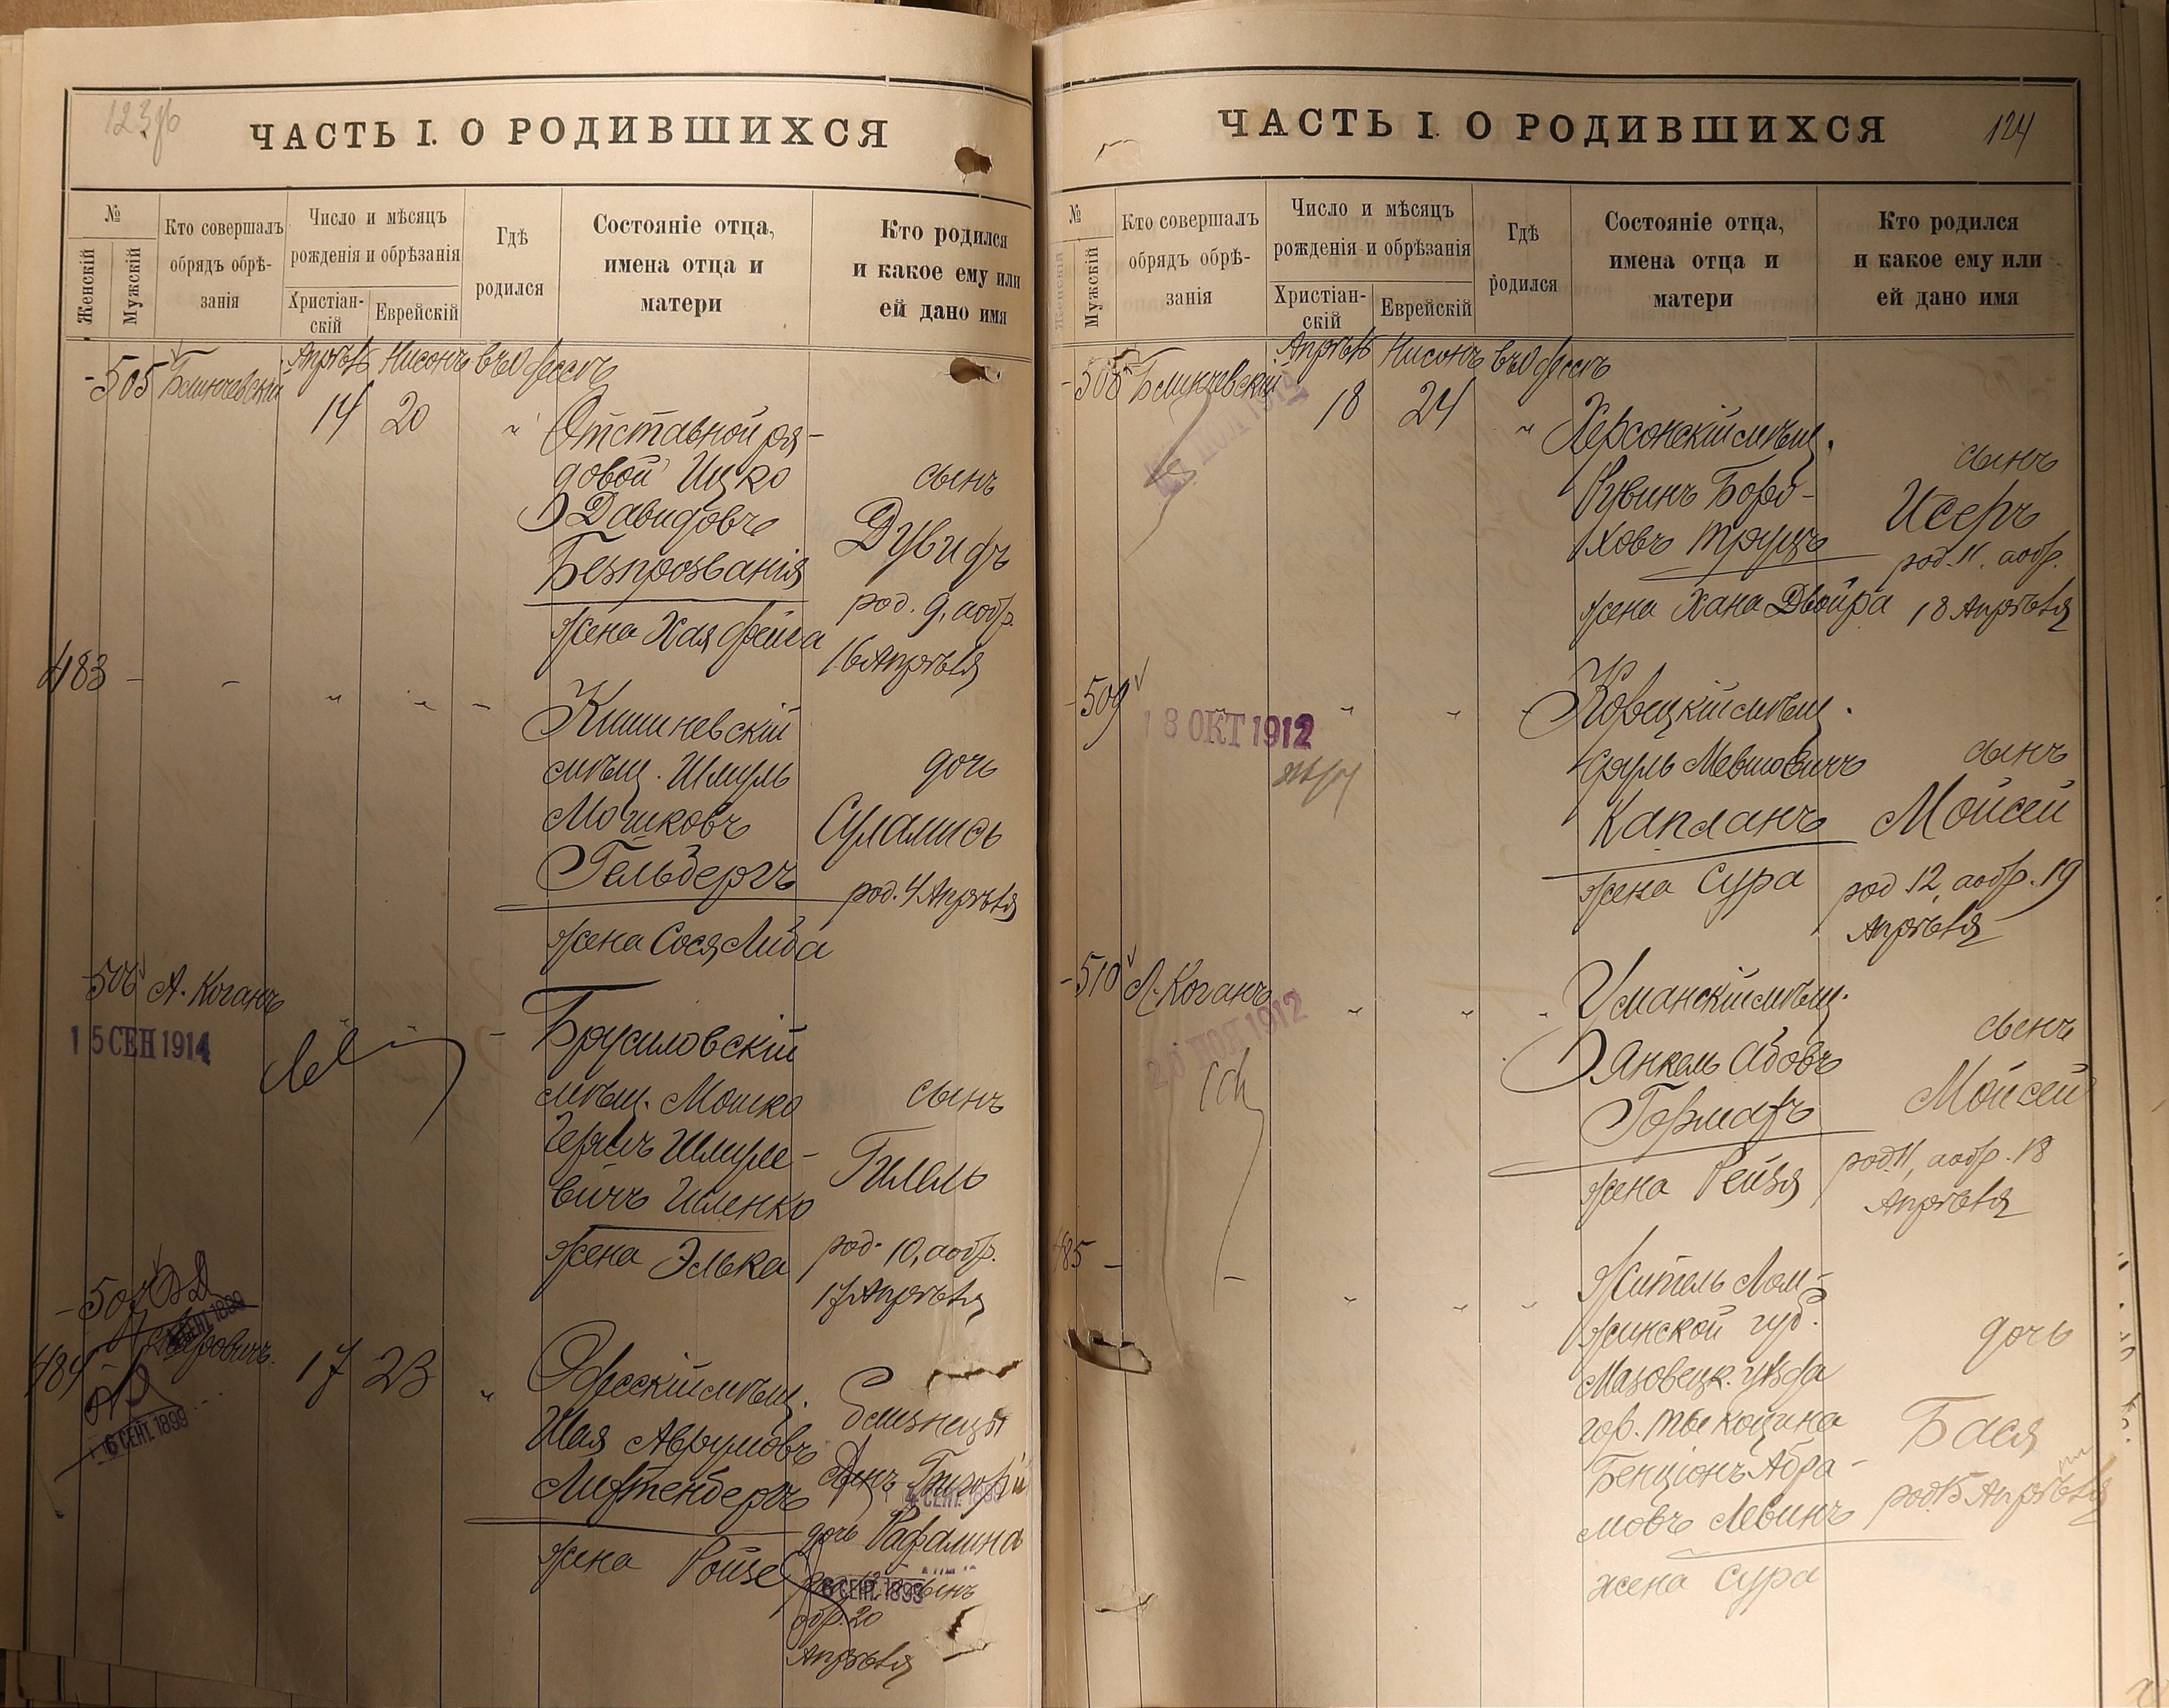 ЧАСТЬ I. О РОДИВШИХСЯ
№
Женскій
Мужскій
Кто совершалъ
обрядъ обрѣ-
занія
Число и мѣсяцъ
рожденія и обрѣзанія
Христіан-
скій
Еврейскій
Гдѣ
родился
Состояніе отца,
имена отца и
матери
Кто родился
и какое ему или
ей дано имя
505
Апрѣль Нисонъ въ Одессѣ
14 20
Отставной ря-
довой Ицко
Давидовъ
Безпрозванія
жена Хая Фейга
сынъ
Дувидъ
род. 9, а обр.
16 Апрѣля
483
Кишиневскій
мѣщ. Шмуль
Мошковъ
Гельбергъ
жена Сося Либа
дочь
Суламись
род. 4 Апрѣля
506 А. Коганъ
15 СЕН 1914
Брусиловскій
мѣщ. Мошко
Гершъ Шмуле-
вичъ Шленко
жена Элька
сынъ
Гилель
род. 10, а обр.
17 Апрѣля
507
484
6 СЕНТ. 1899
17 23
Одесскій мѣщ.
Шая Аврумовъ
Лифтенбергъ
жена Ройзе
близнецы
сынъ Григорій
дочь Рафалина
6 СЕНТ. 1899
обр. 20
Апрѣля
ЧАСТЬ I. О РОДИВШИХСЯ
124
№
Женскій
Мужскій
Кто совершалъ
обрядъ обрѣ-
занія
Число и мѣсяцъ
рожденія и обрѣзанія
Христіан-
скій
Еврейскій
Гдѣ
родился
Состояніе отца,
имена отца и
матери
Кто родился
и какое ему или
ей дано имя
508
Апрѣль Нисонъ въ Одессѣ
18 24
Херсонскій мѣщ.
Рувинъ Боро-
ховъ Труцъ
жена Хана Двойра
сынъ
Исеръ
род. 11, а обр.
18 Апрѣля
509
18 ОКТ 1912
Корецкій мѣщ.
Сруль Мевшовичъ
Капланъ
жена Сура
сынъ
Мойсей
род 12, а обр. 19
Апрѣля
510 Л. Коганъ
1912
Уманскій мѣщ.
Янкель Абовъ
жена Рейзя
сынъ
Мойсей
род. 11, а обр. 18
Апрѣля
485
Житель Лом-
жинской губ.
Мазовецк. уѣзда
гор. Тыкоцина
Бенціонъ Абра-
мовъ Левинъ
жена Сура
дочь
Бася
род 15 Апрѣля